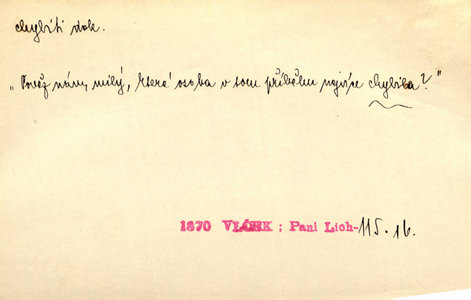 chybiti dok.
"Pověz nám, milý, která osoba v tom příběhu nejvíce chybila?"
1870 VLČEK ; Paní Lich- 115.16.